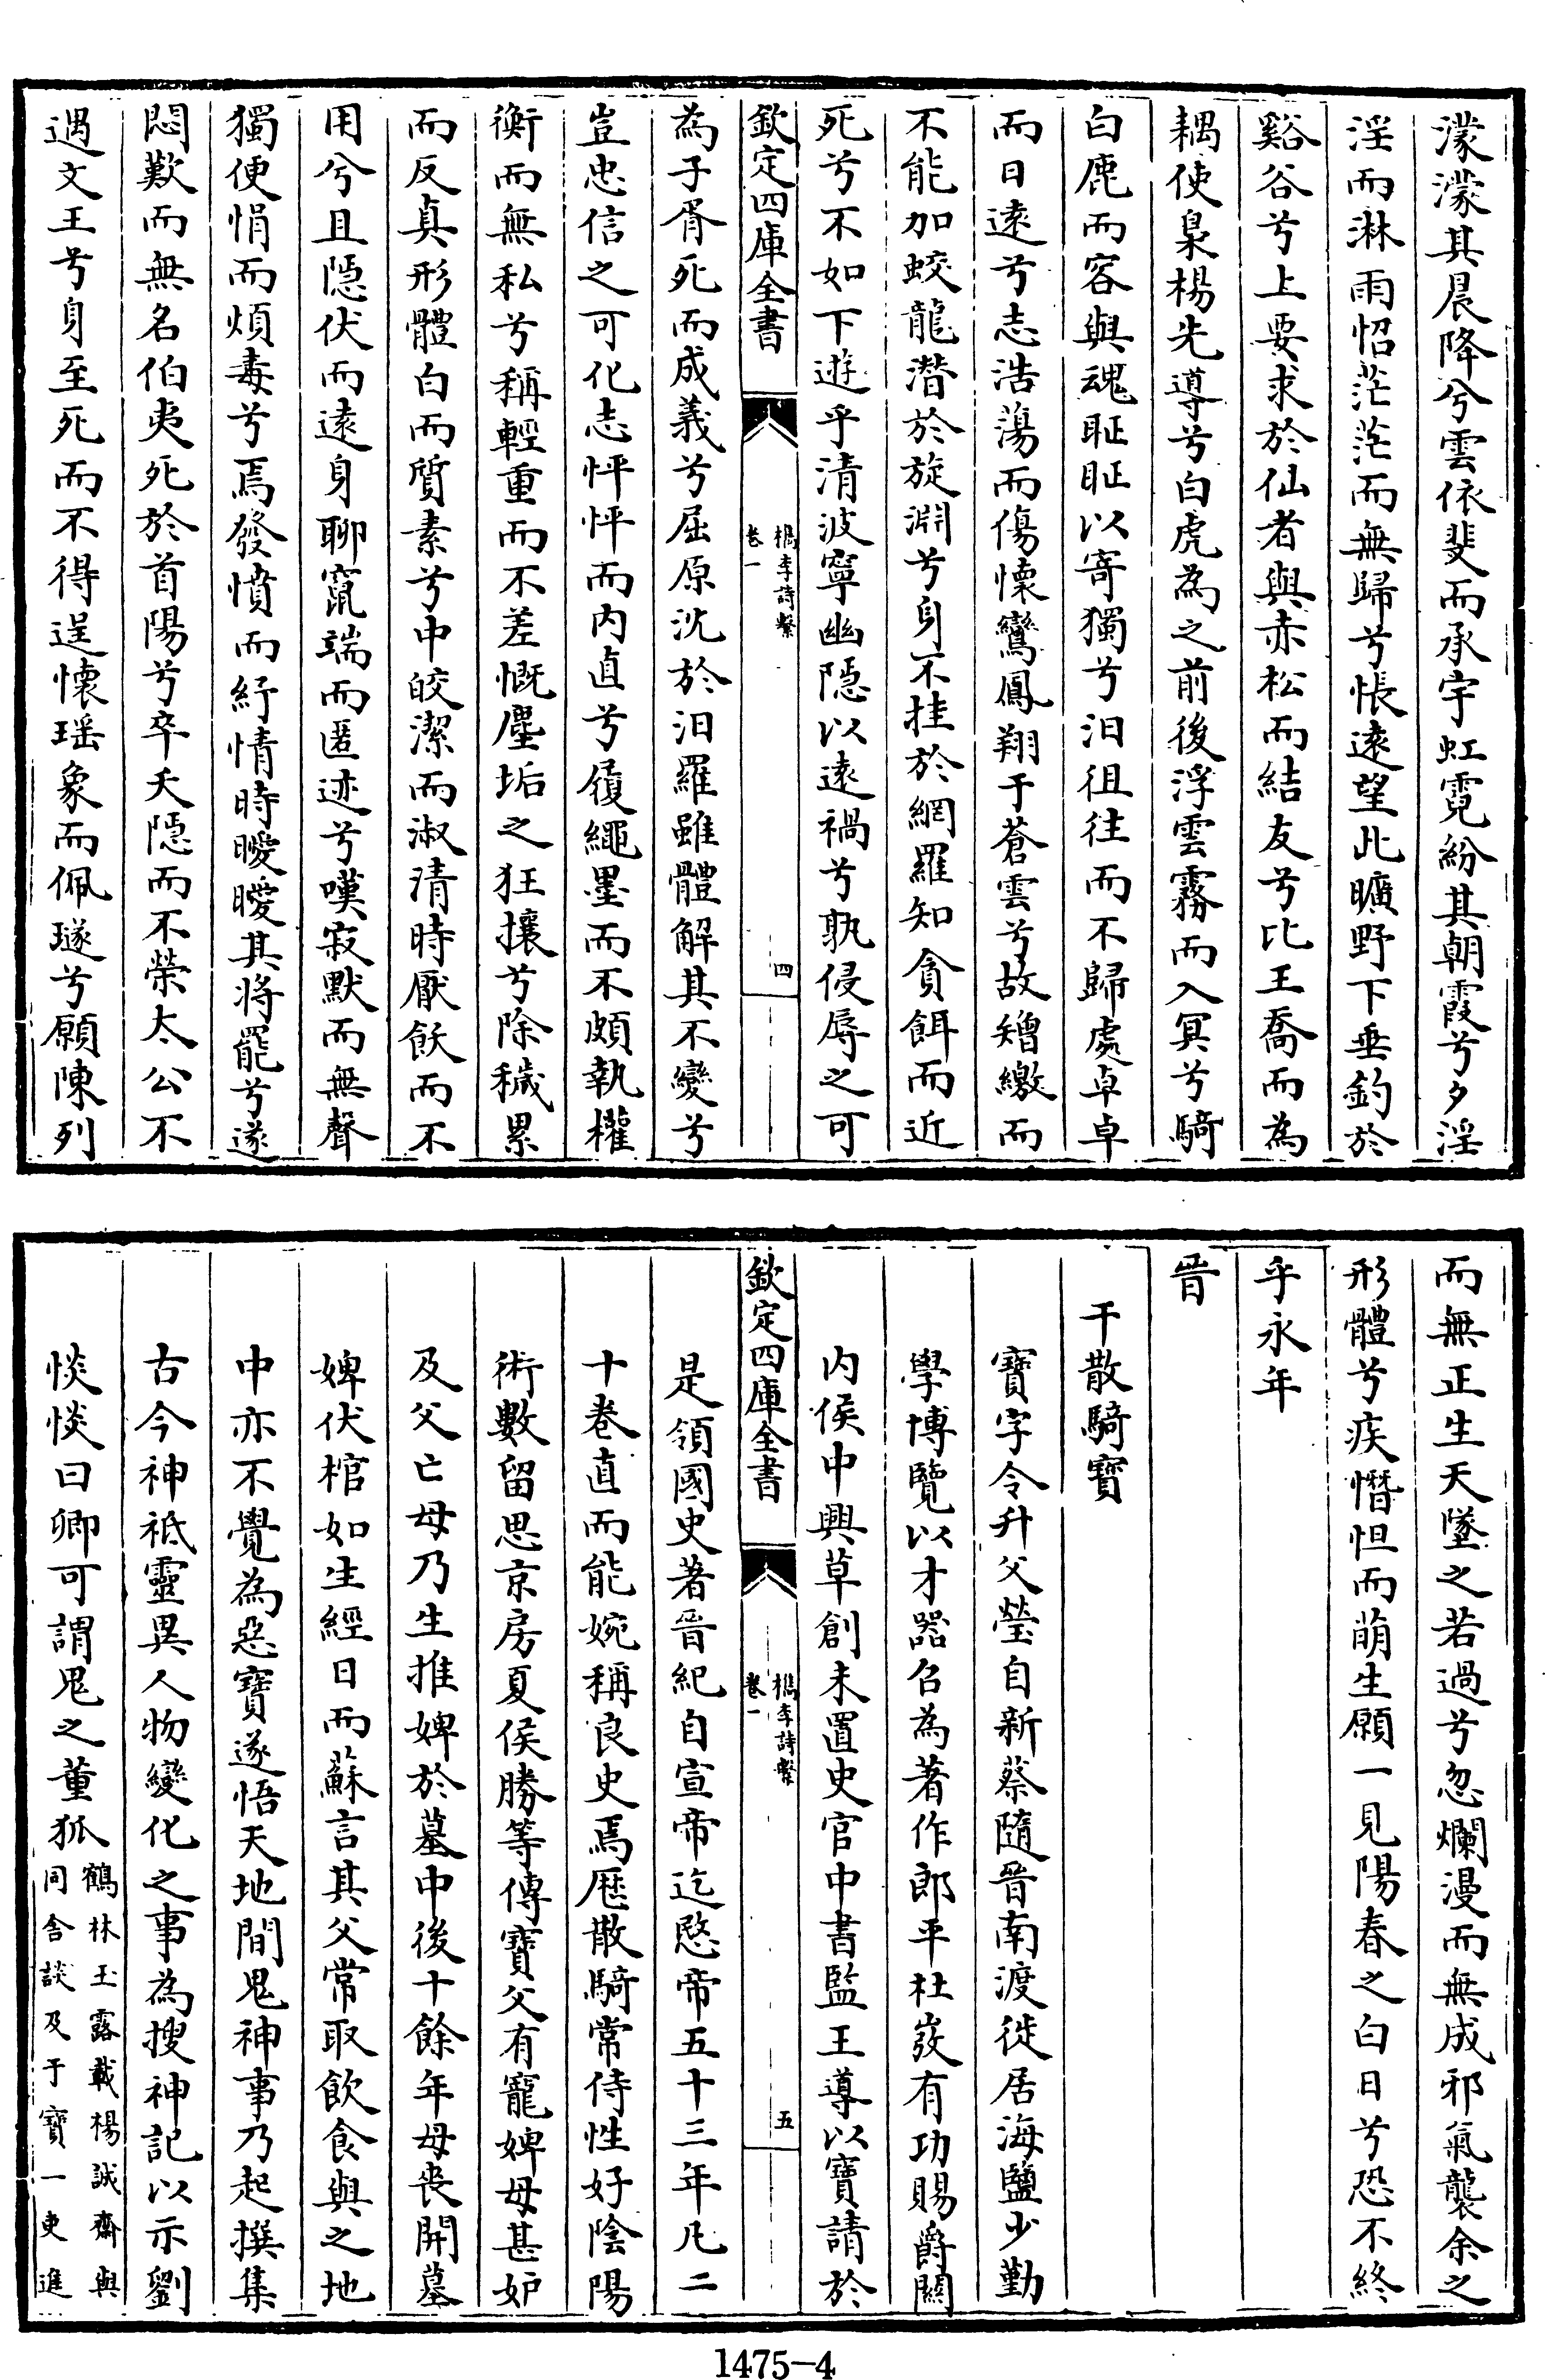 濛濛其晨降兮雲依斐而承宇虹霓紛其朝霞兮夕淫
淫而淋雨怊茫茫而無歸兮悵遠望此曠野下垂釣於
谿谷兮上要求於仙者與赤松而結友兮比王喬而為
耦使梟楊先導兮白虎為之前後浮雲霧而入冥兮騎
白鹿而容與魂眐眐以寄獨兮汨徂往而不歸處卓卓
而日遠兮志浩蕩而傷懷鸞鳳翔于蒼雲兮故矰繳而
不能加蛟龍潛於旋淵兮身不挂於網羅知貪餌而近
死兮不如下遊乎清波寧幽隱以遠禍兮孰侵辱之可
欽定四庫全書
檇李詩繫
卷一
四
為子胥死而成義兮屈原沈於汨羅雖體解其不變兮
豈忠信之可化志怦怦而內直兮履繩墨而不頗執權
衡而無私兮稱輕重而不差慨塵垢之狂攘兮除穢累
而反真形體白而質素兮中皎潔而淑清時厭飫而不
用兮且隱伏而遠身聊竄端而匿迹兮嘆寂默而無聲
獨便悁而煩毒兮焉發憤而紓情時曖曖其將罷兮遂
悶歎而無名伯夷死於首陽兮卒夭隱而不榮太公不
遇文王兮身至死而不得逞懷瑤象而佩璲兮願陳列
而無正生天墬之若過兮忽爛漫而無成邪氣襲余之
形體兮疾憯怛而萌生願一見陽春之白日兮恐不終
乎永年
晉
干散騎寶
寶字令升父瑩自新蔡隨晉南渡徙居海鹽少勤
學博覽以才器召為著作郎平杜弢有功賜爵關
內侯中興草創未置史官中書監王導以寶請於
欽定四庫全書
檇李詩繫
卷一
五
是領國史著晉紀自宣帝迄愍帝五十三年凡二
十卷直而能婉稱良史焉歷散騎常侍性好陰陽
術數留思京房夏侯勝等傳寶父有寵婢母甚妒
及父亡母乃生推婢於墓中後十餘年母喪開墓
婢伏棺如生經日而蘇言其父常取飲食與之地
中亦不覺為惡寶遂悟天地間鬼神事乃起撰集
古今神祇靈異人物變化之事為搜神記以示劉
惔惔曰卿可謂鬼之董狐
鶴林玉露載楊誠齋與
同舍談及于寶一吏進
1475-4